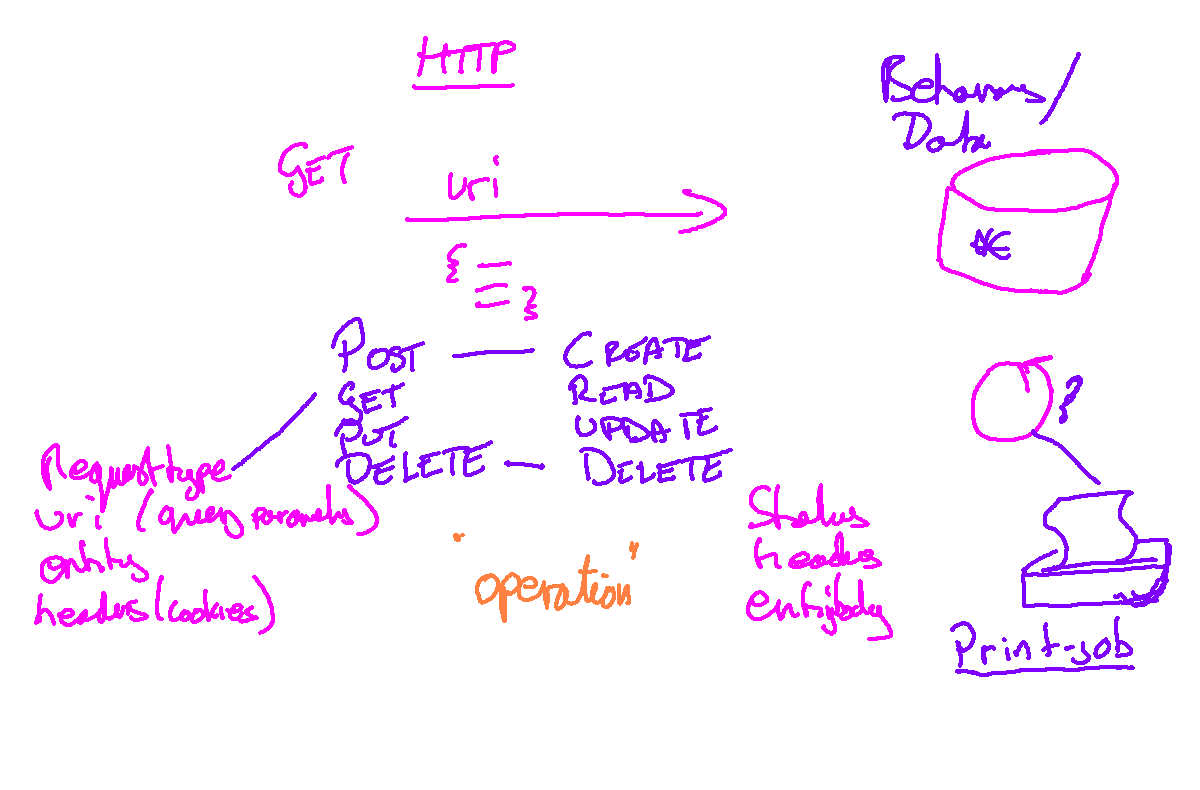 HTTP
Behaviours/
Data
GET
uri
{
}
POST — CREATE
GET READ
PUT UPDATE
DELETE — DELETE
Request type
uri (query params)
entity
headers (cookies)
"operation"
Status
headers
entity body
?
Print-job